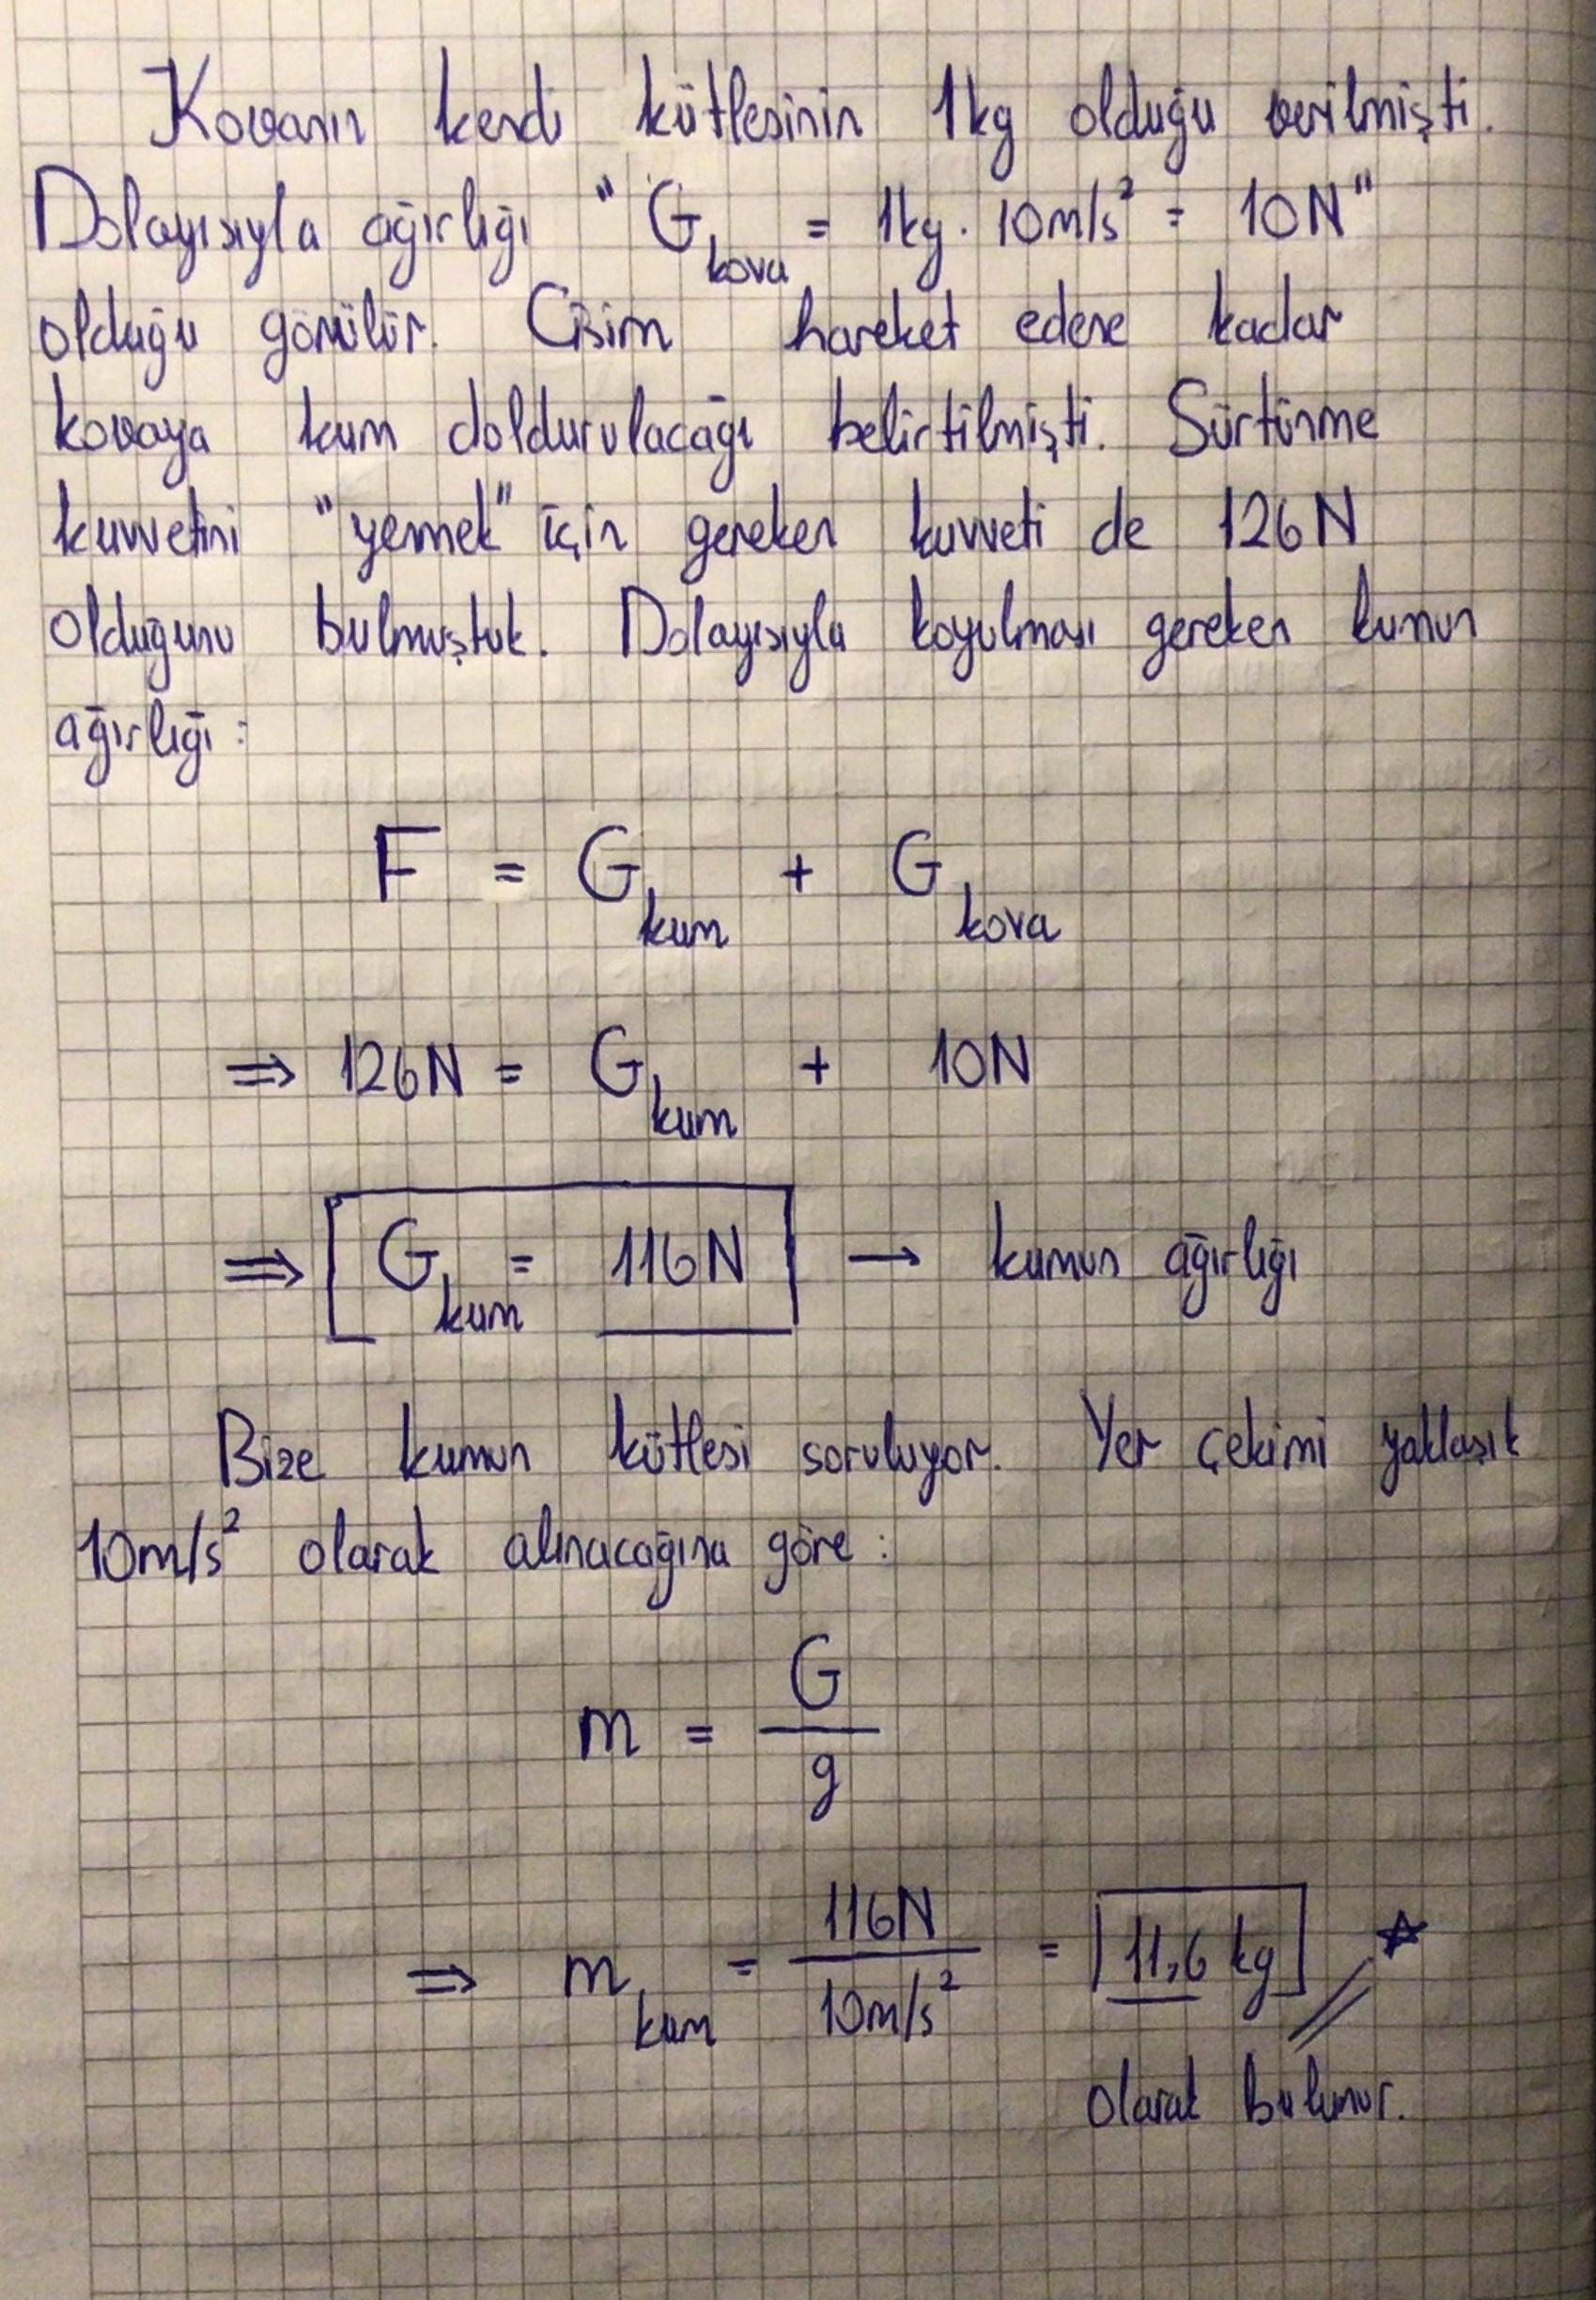 Kovanın kendi kütlesinin 1kg olduğu verilmişti.
Dolayısıyla ağırlığı "G kova = 1kg . 10m/s² = 10N"
olduğu görülür. Cisim hareket edene kadar
kovaya kum doldurulacağı belirtilmişti. Sürtünme
kuvvetini "yenmek" için gereken kuvveti de 126N
olduğunu bulmuştuk. Dolayısıyla koyulması gereken kumun
ağırlığı:
F = G kum + G kova
⇒ 126N = G kum + 10N
⇒ G kum = 116N → kumun ağırlığı
Bize kumun kütlesi soruluyor. Yer çekimi yaklaşık
10m/s² olarak alınacağına göre:
m = G / g
⇒ m kum = 116N / 10m/s² = 11,6 kg ☆
olarak bulunur.